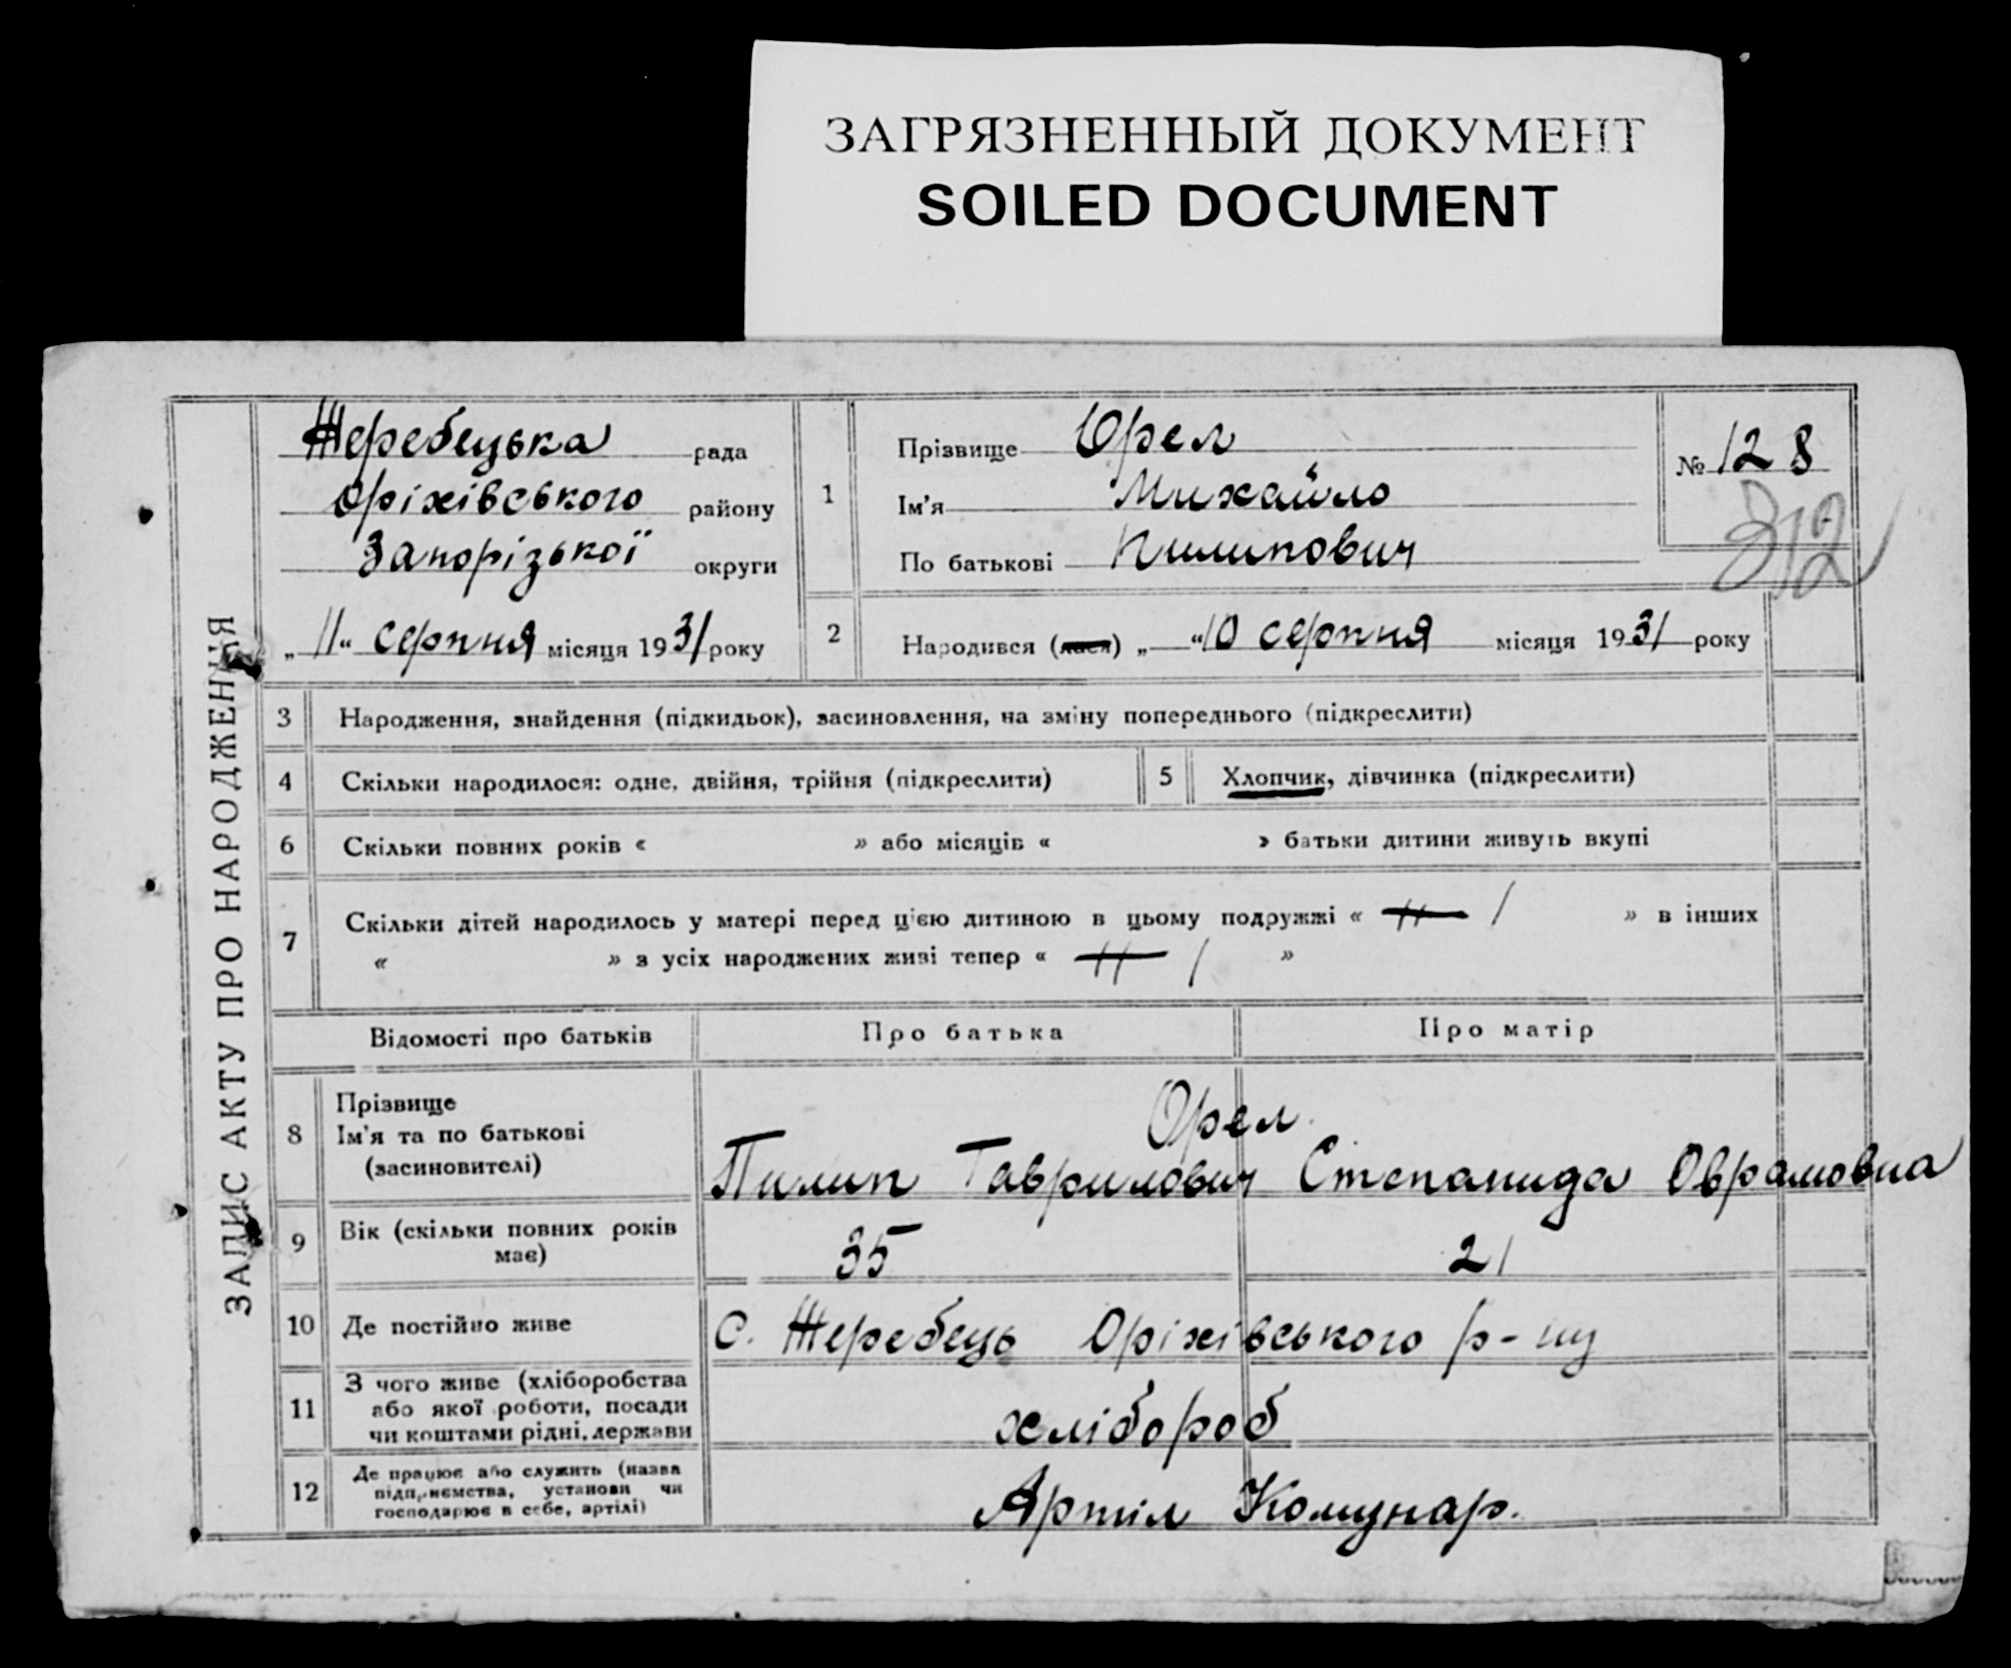 ЗАГРЯЗНЕННЫЙ ДОКУМЕНТ
SOILED DOCUMENT
ЗАПИС АКТУ ПРО НАРОДЖЕННЯ
Жеребецька рада
Оріхівського району
Запорізької округи
„ 11 “ серпня місяця 1931 року
1 Прізвище Орел
Ім'я Михайло
По батькові Пилипович
№ 128
312
2 Народився (лася) „ “10 серпня місяця 1931 року
3 Народження, знайдення (підкидьок), засиновлення, на зміну попереднього (підкреслити)
4 Скільки народилося: одне, двійня, трійня (підкреслити) 5 Хлопчик, дівчинка (підкреслити)
6 Скільки повних років « » або місяців « » батьки дитини живуть вкупі
7 Скільки дітей народилось у матері перед цією дитиною в цьому подружжі « 1 » в інших
« » з усіх народжених живі тепер « 1 »
Відомості про батьків Про батька Про матір
8 Прізвище
Ім'я та по батькові
(засиновителі)
Орел
Пилип Гаврилович Степанида Оврамовна
9 Вік (скільки повних років
має)
35 21
10 Де постійно живе с. Жеребець Оріхівського р-ну
11 З чого живе (хліборобства
або якої роботи, посади
чи коштами рідні, держави
хлібороб
12 Де працює або служить (назва
підприємства, установи чи
господарює в себе, артілі)
Артіл Комунар.